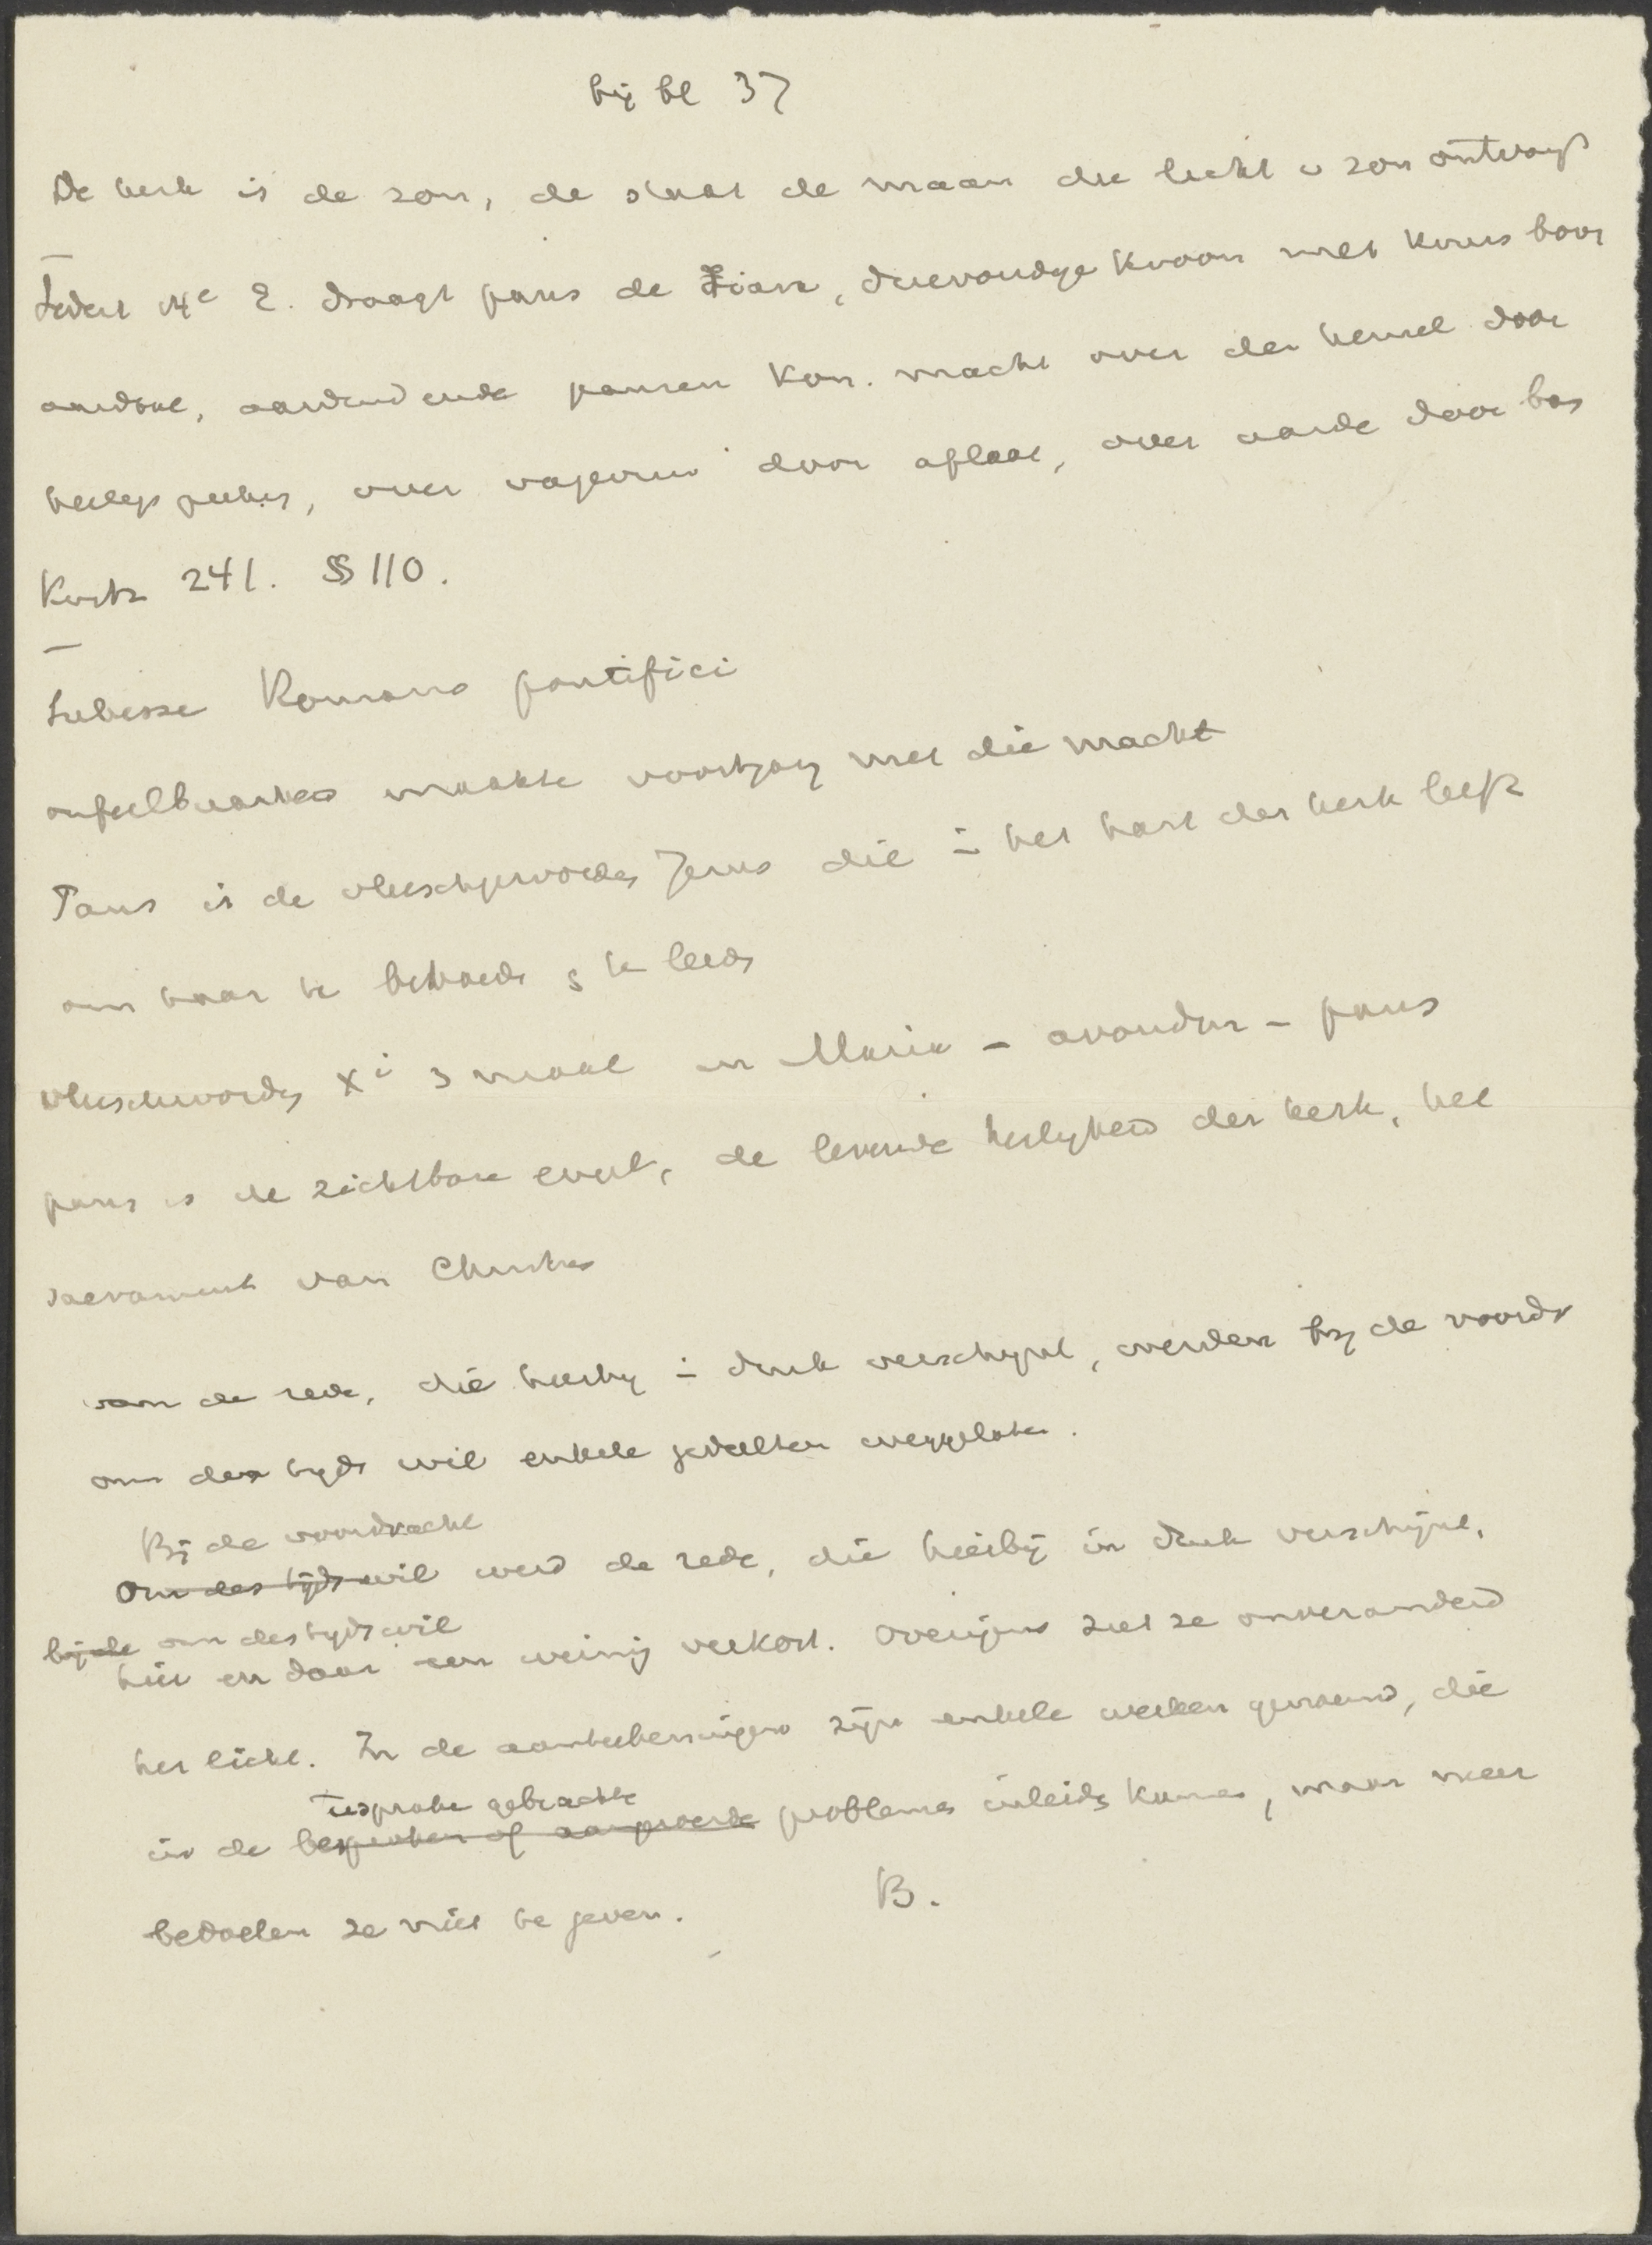 bij bl 37
De kerk is de zon, de staat de maan die licht v zon ontvangt
Sedert 14e E. draagt paus de Tiara, drievoudige kroon met kruis boven
aardbol, aanduidende pausen kon. macht over den hemel door
heiligsprekg, over vagevuur door aflaat, over aarde door ban
Kurtz 241. § 110.
Subesse Romano pontifici
onfeilbaarheid maakte voortgang met die macht
Paus is de vleeschgeworden Jezus die in het hart der kerk leeft
om haar te behoeden & te leiden
vleeschwording Xi 3 maal in Maria - avondm - paus
paus is de zichtbare engel, de levende heiligheid der kerk, het
sacrament van Christus
van de rede, die hierbij in druk verschijnt, werden bij de voordr
om des tijds wil enkele gedeelten weggelaten.
Bij de voordracht
Om des tijds wil werd de rede, die hierbij in druk verschijnt,
bij de om des tijds wil
hier en daar een weinig verkort. Overigens ziet ze onveranderd
het licht. In de aanteekeningen zijn enkele werken genoemd, die
ter sprake gebrachte
in de besproken of aangeroerde problemen inleiden kunnen, maar meer
bedoelen ze niet te geven. B.